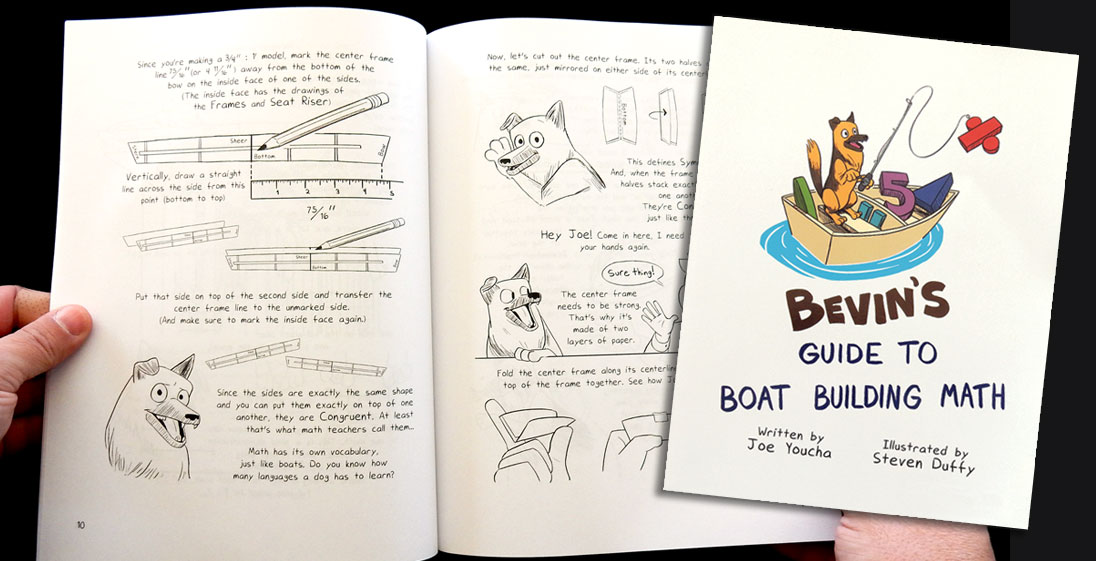 Since you're making a 3/4" : 1' model, mark the center frame
line 75/16" (or 4 11/16") away from the bottom of the
bow on the inside face of one of the sides.
(The inside face has the drawings of
the Frames and Seat Riser)
Sheer
Bottom
Bow
Vertically, draw a straight
line across the side from this
point (bottom to top)
1 2 3 4 5
75/16"
Sheer
Bottom
Put that side on top of the second side and transfer the
center frame line to the unmarked side.
(And make sure to mark the inside face again.)
Since the sides are exactly the same shape
and you can put them exactly on top of one
another, they are Congruent. At least
that's what math teachers call them...
Math has its own vocabulary,
just like boats. Do you know how
many languages a dog has to learn?
10
Now, let's cut out the center frame. Its two halves
the same, just mirrored on either side of its center
Bottom
This defines
And, when the frame
halves stack
one
They're
just like
Hey Joe! Come in here, I need
your hands again.
Sure thing!
The center frame
needs to be strong.
That's why it's
made of two
layers of paper.
Fold the center frame along its
top of the frame together. See how
BEVIN'S
GUIDE TO
BOAT BUILDING MATH
Written by
Joe Youcha
Illustrated by
Steven Duffy
5